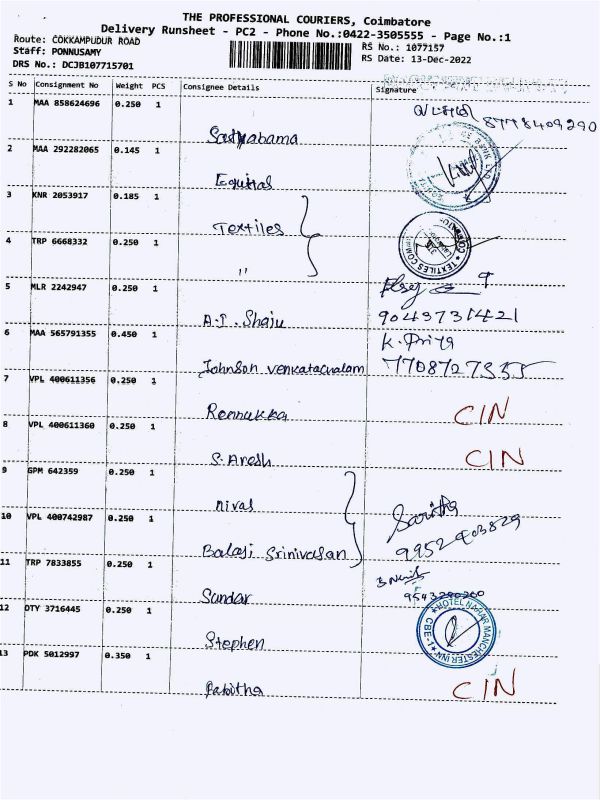 THE PROFESSIONAL COURIERS, Coimbatore
Delivery Runsheet - PC2 - Phone No.:0422-3505555 - Page No.:1
Route: COKKAMPUDUR ROAD
RS No.: 1077157
Staff: PONNUSAMY
RS Date: 13-Dec-2022
DRS No.: DCJB107715701
S No Consignment No Weight PCS Consignee Details Signature
1 MAA 858624696 0.250 1
8778409290
Sathyabama
2 MAA 292282065 0.145 1
Equitas
3 KNR 2053917 0.185 1
Textiles
4 TRP 6668332 0.250 1
"
TEXTILES COM
5 MLR 2242947 0.250 1
A.I. Shaju 9043731421
6 MAA 565791355 0.450 1 K. Priya
Johnson Venkatachalam 7708727535
7 VPL 400611356 0.250 1
Rennukka CIN
8 VPL 400611360 0.250 1
S. Aresh CIN
9 GPM 642359 0.250 1
nival Saritha
10 VPL 400742987 0.250 1
Balaji Srinivasan 9952403829
11 TRP 7833855 0.250 1
Sundar 9543290260
12 OTY 3716445 0.250 1
HOTEL NAHAR MANCHESTER INN
CBE-1
Stephen
13 PDK 5012997 0.350 1
Pabitha CIN